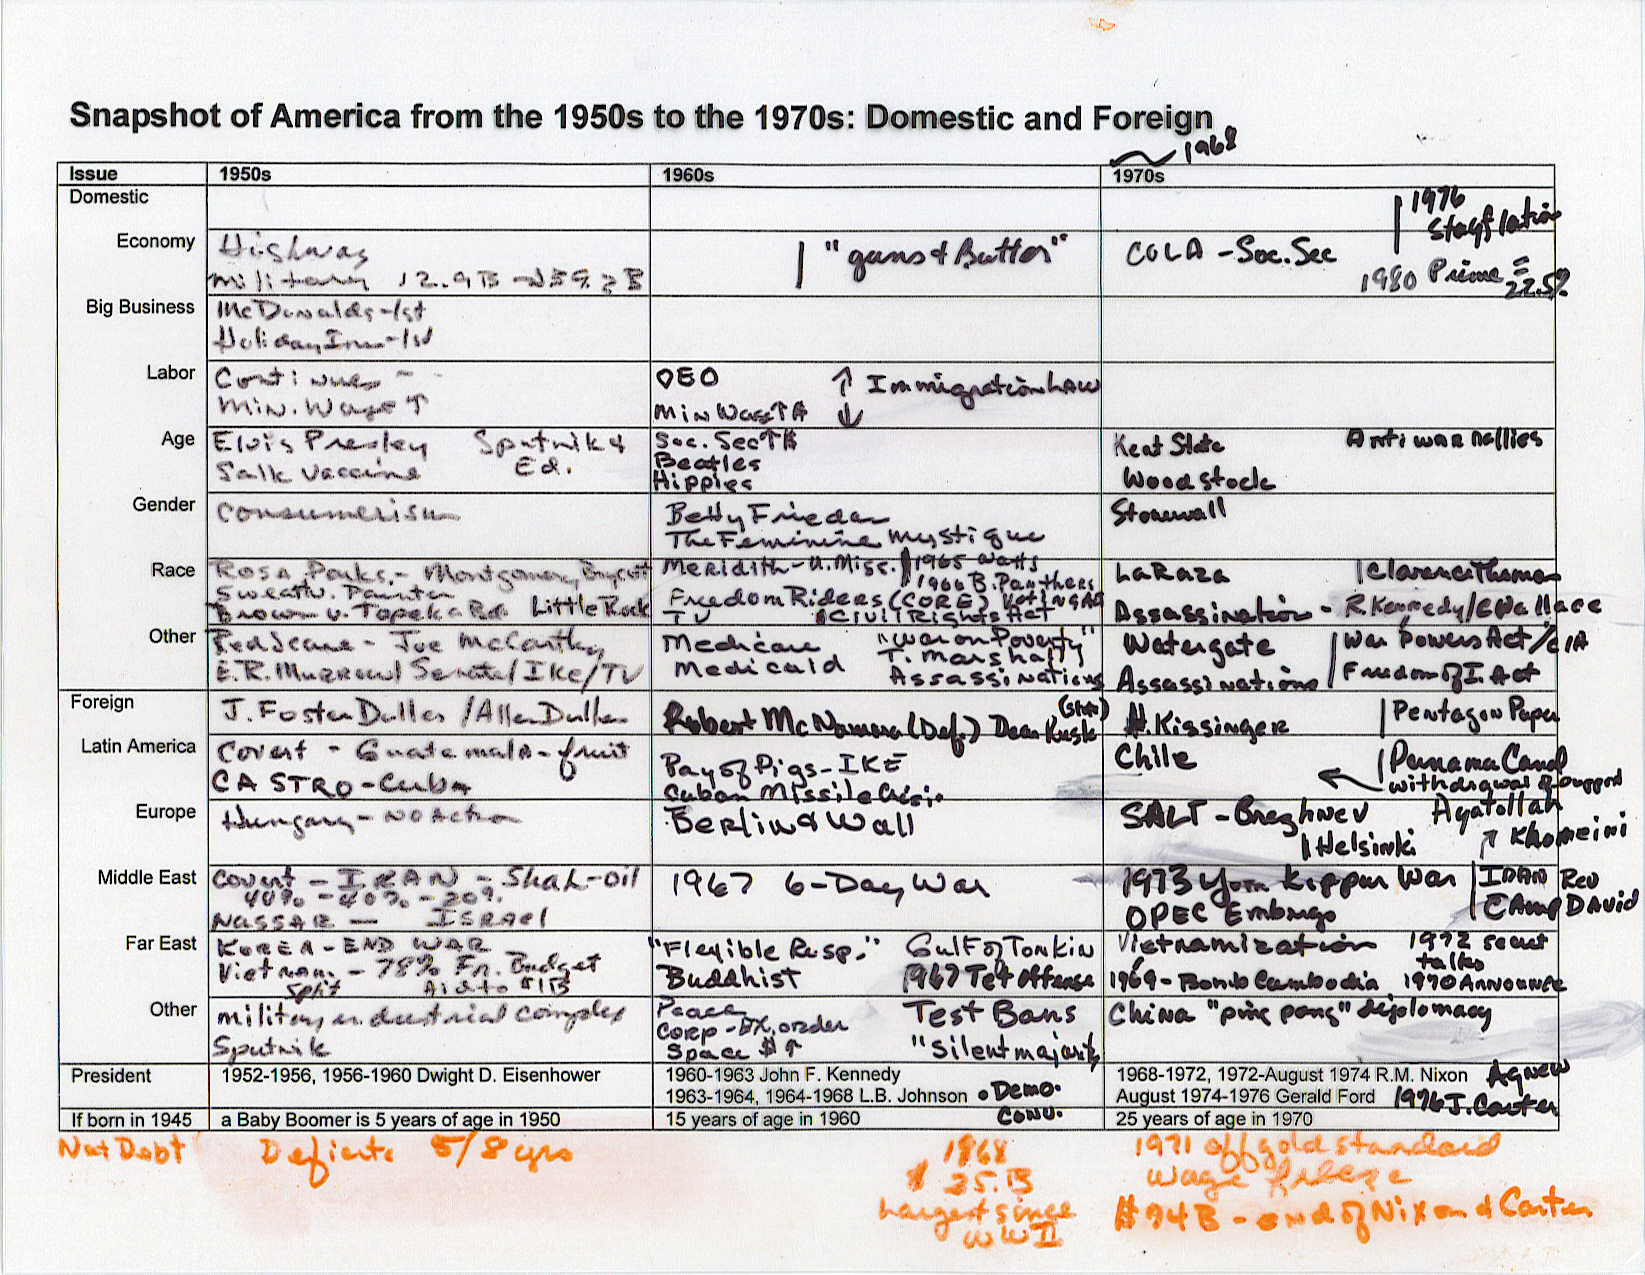 Snapshot of America from the 1950s to the 1970s: Domestic and Foreign
1968
Issue 1950s 1960s 1970s
Domestic 1976
Stagflation
Economy Highway "guns & Butter" COLA - Soc. Sec
Military 12.9B 1980 Prime = 22.5%
Big Business McDonalds - 1st
Holiday Inn - 1st
Labor Continues OEO ↑ Immigration Law
Min. Wage ↑ Min Wage ↑ $ ↓
Age Elvis Presley Sputnik & Soc. Sec ↑ $ Kent State Anti war rallies
Salk Vaccine Ed. Beatles Woodstock
Hippies
Gender Consumerism Betty Friedan Stonewall
The Feminine Mystique
Race Rosa Parks - Montgomery Boycott Meridith - U. Miss. 1965 Watts LaRaza Clarence Thomas
Sweatt v. Painter 1966 B. Panthers
Brown v. Topeka Bd. Little Rock Freedom Riders (CORE) Voting Assassination - R. Kennedy/G Wallace
TV Civil Rights Act
Other Red Scare - Joe McCarthy Medicare "War on Poverty" Watergate War Powers Act/CIA
E.R. Murrow/ Senate/IKE/TV Medicaid T. Marshall Assassinations Freedom of I. Act
Assassinations
Foreign J. Foster Dulles / Allen Dulles Robert McNamara (Def.) Dean Rusk (State) H. Kissinger Pentagon Paper
Latin America Covert - Guatemala - fruit Bay of Pigs - IKE Chile Panama Canal
CASTRO - Cuba Cuban Missile Crisis ← withdrawal of support
Europe Hungary - No Action Berlin & Wall SALT - Breghnev Ayatollah
Helsinki ↑ Khomeini
Middle East Covert - IRAN - Shah - oil 1967 6-Day War 1973 Yom Kippur War IRAN Rev
40% - 40% - 20%
Nassar - ISRAEl OPEC Embargo CAmp DAVID
Far East KOREA - END WAR "Flexible Resp." Gulf of Tonkin Vietnamization 1972 secret
Vietnam - 78% Fr. Budget talks
Split Aid to $1B Buddhist 1967 Tet Offense 1969 - Bomb Cambodia 1970 Announce
Other military industrial complex Peace Test Bans China "ping pong" diplomacy
Sputnik Corp - Ex. order
Space $ ↑ "Silent majority
President 1952-1956, 1956-1960 Dwight D. Eisenhower 1960-1963 John F. Kennedy 1968-1972, 1972-August 1974 R.M. Nixon Agnew
1963-1964, 1964-1968 L.B. Johnson • Demo. August 1974-1976 Gerald Ford 1976 J. Carter
If born in 1945 a Baby Boomer is 5 years of age in 1950 15 years of age in 1960 Conv. 25 years of age in 1970
Nat Debt Deficits 5/8 yrs 1968 1971 off gold standard
$ 25.B wage freeze
Largest since $74B - end of Nixon & Carter
WWII